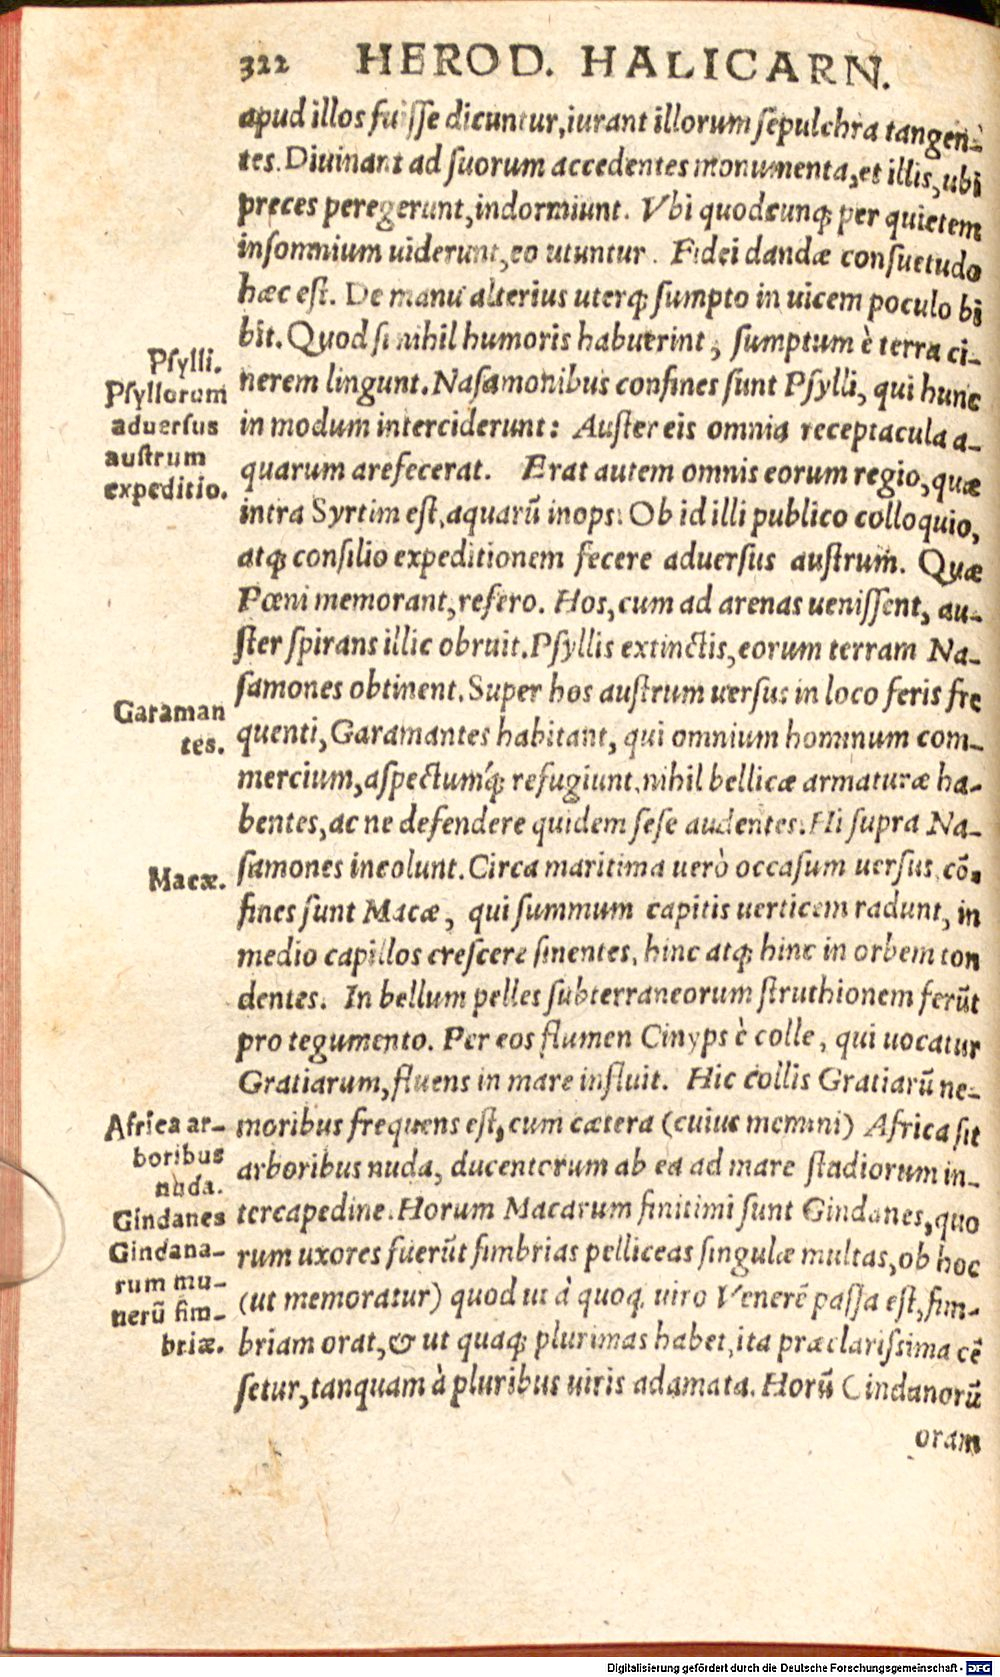 322 HEROD. HALICARN.
apud illos fuiſſe dicuntur, iurant illorum ſepulchra tangen-
tes. Diuinant ad ſuorum accedentes monumenta, et illis, ubi
preces peregerunt, indormiunt. Vbi quodcunq; per quietem
inſomnium uiderunt, eo utuntur. Fidei dandæ conſuetudo
hæc eſt. De manu alterius uterq; ſumpto in uicem poculo bi
bit. Quod ſi nihil humoris habuerint, ſumptum è terra ci-
Pſylli.
nerem lingunt. Naſamonibus confines ſunt Pſylli, qui hunc
Pſyllorum
in modum interciderunt: Auſter eis omnia receptacula a-
aduerſus
quarum arefecerat. Erat autem omnis eorum regio, quæ
auſtrum
expeditio.
intra Syrtim eſt, aquarũ inops. Ob id illi publico colloquio,
atq; conſilio expeditionem fecere aduerſus auſtrum. Quæ
Pœni memorant, refero. Hos, cum ad arenas ueniſſent, au-
ſter ſpirans illic obruit. Pſyllis extinctis, eorum terram Na-
ſamones obtinent. Super hos auſtrum uerſus in loco feris fre
Garaman
tes.
quenti, Garamantes habitant, qui omnium hominum com-
mercium, aſpectumq́; refugiunt, nihil bellicæ armaturæ ha-
bentes, ac ne defendere quidem ſeſe audentes. Hi ſupra Na-
Macæ.
ſamones incolunt. Circa maritima uerò occaſum uerſus, cõ-
fines ſunt Macæ, qui ſummum capitis uerticem radunt, in
medio capillos creſcere ſinentes, hinc atq; hinc in orbem ton
dentes. In bellum pelles ſubterraneorum ſtruthionem ferũt
pro tegumento. Per eos flumen Cinyps è colle, qui uocatur
Gratiarum, fluens in mare influit. Hic collis Gratiarũ ne-
Africa ar-
moribus frequens eſt, cum cætera (cuius memini) Africa ſit
boribus
nuda.
arboribus nuda, ducentorum ab ea ad mare ſtadiorum in-
Gindanes
tercapedine. Horum Macarum finitimi ſunt Gindanes, quo
Gindana-
rum uxores fuerũt fimbrias pelliceas ſingulæ multas, ob hoc
rum mu-
nerũ fim-
(ut memoratur) quod ut à quoq; uiro Venerẽ paſſa eſt, fim-
briæ.
briam orat, & ut quaq; plurimas habet, ita præclariſſima cẽ
ſetur, tanquam à pluribus uiris adamata. Horũ Gindanorũ
oram
Digitalisierung gefördert durch die Deutsche Forschungsgemeinschaft - DFG